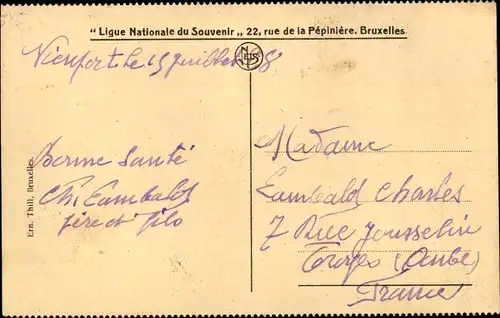 “ Ligue Nationale du Souvenir „ 22, rue de la Pépinière. Bruxelles
NELS
Nieuport le 15 Juillet
Bonne Santé
Ch.
père et fils
Ern. Thill, Bruxelles.
Madame
Charles
7 Rue Jousselin
Troyes (Aube)
France